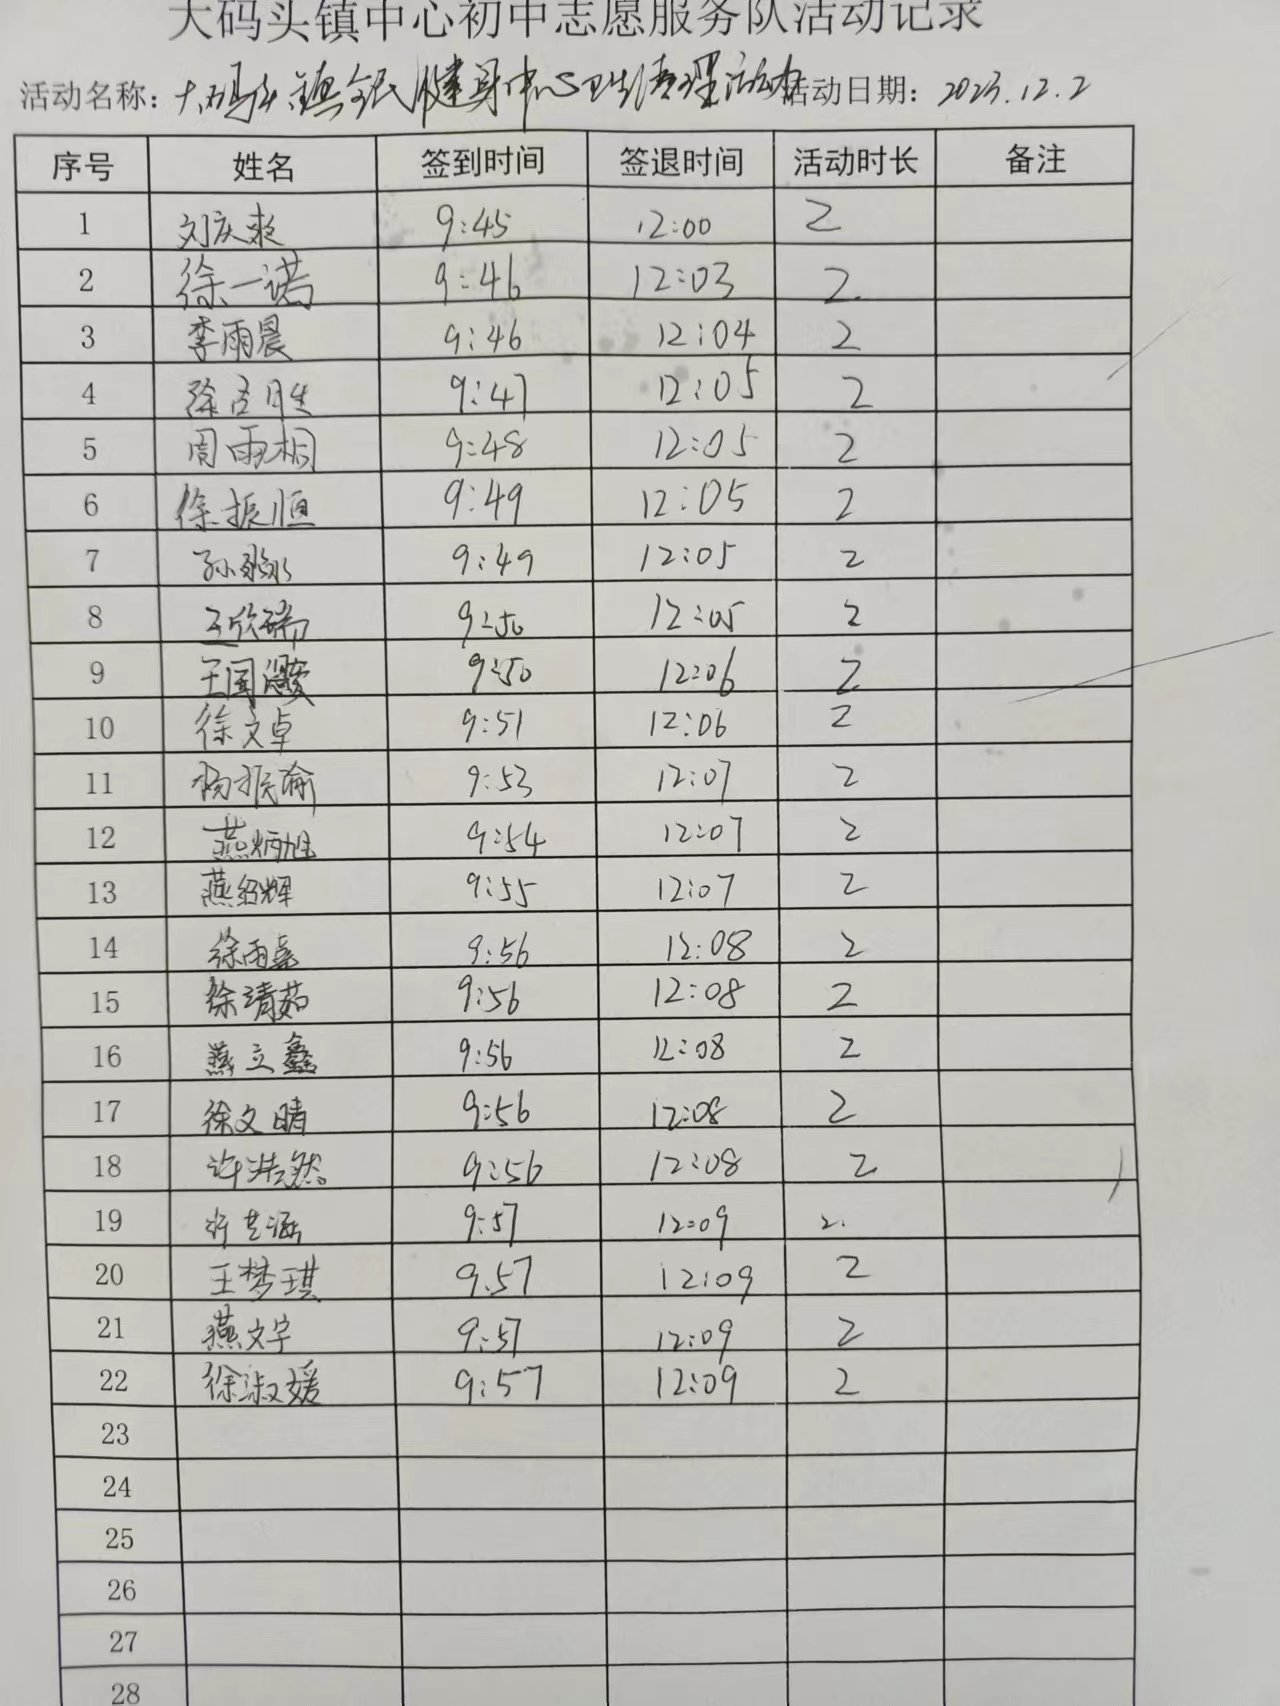 大码头镇中心初中志愿服务队活动记录
活动名称：大码头镇全民健身中心卫生清理活动 活动日期：2023.12.2
序号 姓名 签到时间 签退时间 活动时长 备注
1 刘庆 9:45 12:00 2
2 徐一诺 9:46 12:03 2
3 李雨晨 9:46 12:04 2
4 9:47 12:05 2
5 周雨桐 9:48 12:05 2
6 徐振恒 9:49 12:05 2
7 孙 9:49 12:05 2
8 王欣瑞 9:50 12:05 2
9 王国 9:50 12:06 2
10 徐文卓 9:51 12:06 2
11 杨振瑜 9:53 12:07 2
12 燕炳旭 9:54 12:07 2
13 燕绍辉 9:55 12:07 2
14 徐雨嘉 9:56 12:08 2
15 徐清茹 9:56 12:08 2
16 燕立鑫 9:56 12:08 2
17 徐文晴 9:56 12:08 2
18 许浩然 9:56 12:08 2
19 涵 9:57 12:09 2.
20 王梦琪 9:57 12:09 2
21 燕文宇 9:57 12:09 2
22 徐淑媛 9:57 12:09 2
23
24
25
26
27
28